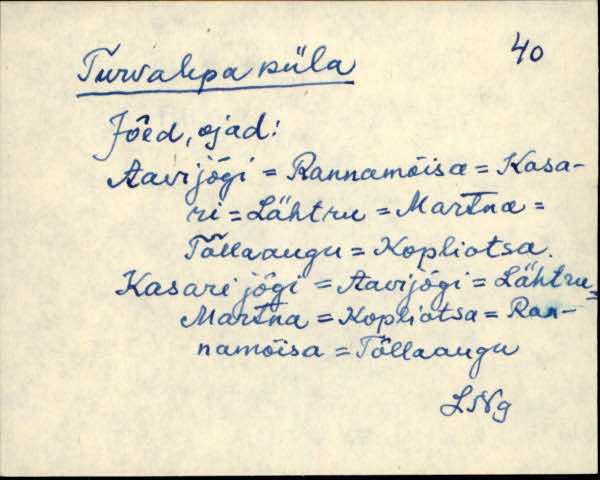 40
Turvalepa küla
Jõed, ojad:
Aavijõgi = Rannamõisa = Kasa-
ri = Lähtru = Martna =
Tõllaaugu = Kopliotsa.
Kasari jõgi = Aavijõgi = Lähtru =
Martna = Kopliotsa = Ran-
namõisa = Tõllaaugu
LNg